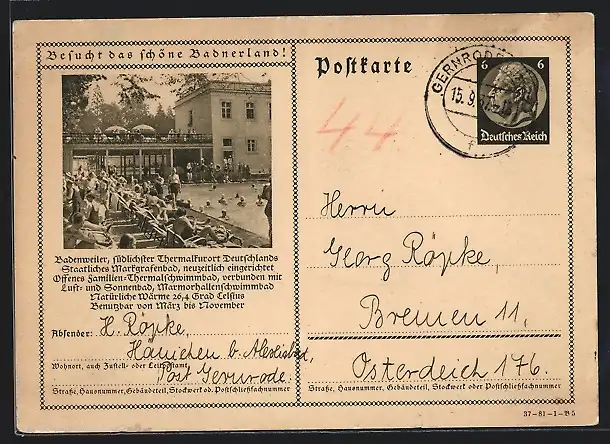 Besucht das schöne Badnerland!
Badenweiler, südlichster Thermalkurort Deutschlands
Staatliches Markgrafenbad, neuzeitlich eingerichtet
Offenes Familien-Thermalschwimmbad, verbunden mit
Luft- und Sonnenbad, Marmorhallenschwimmbad
Natürliche Wärme 26,4 Grad Celsius
Benutzbar von März bis November
Absender: H. Röpke,
Hänichen b. Alexisbad,
Wohnort, auch Zustell- oder Leitpostamt
Post Gernrode.
Straße, Hausnummer, Gebäudeteil, Stockwerk od. Postschließfachnummer
Postkarte
44
GERNRODE
15.9.
6 6
Deutsches Reich
Herrn
Georg Röpke,
Bremen 11,
Osterdeich 176.
Straße, Hausnummer, Gebäudeteil, Stockwerk oder Postschließfachnummer
37-81-1-B5